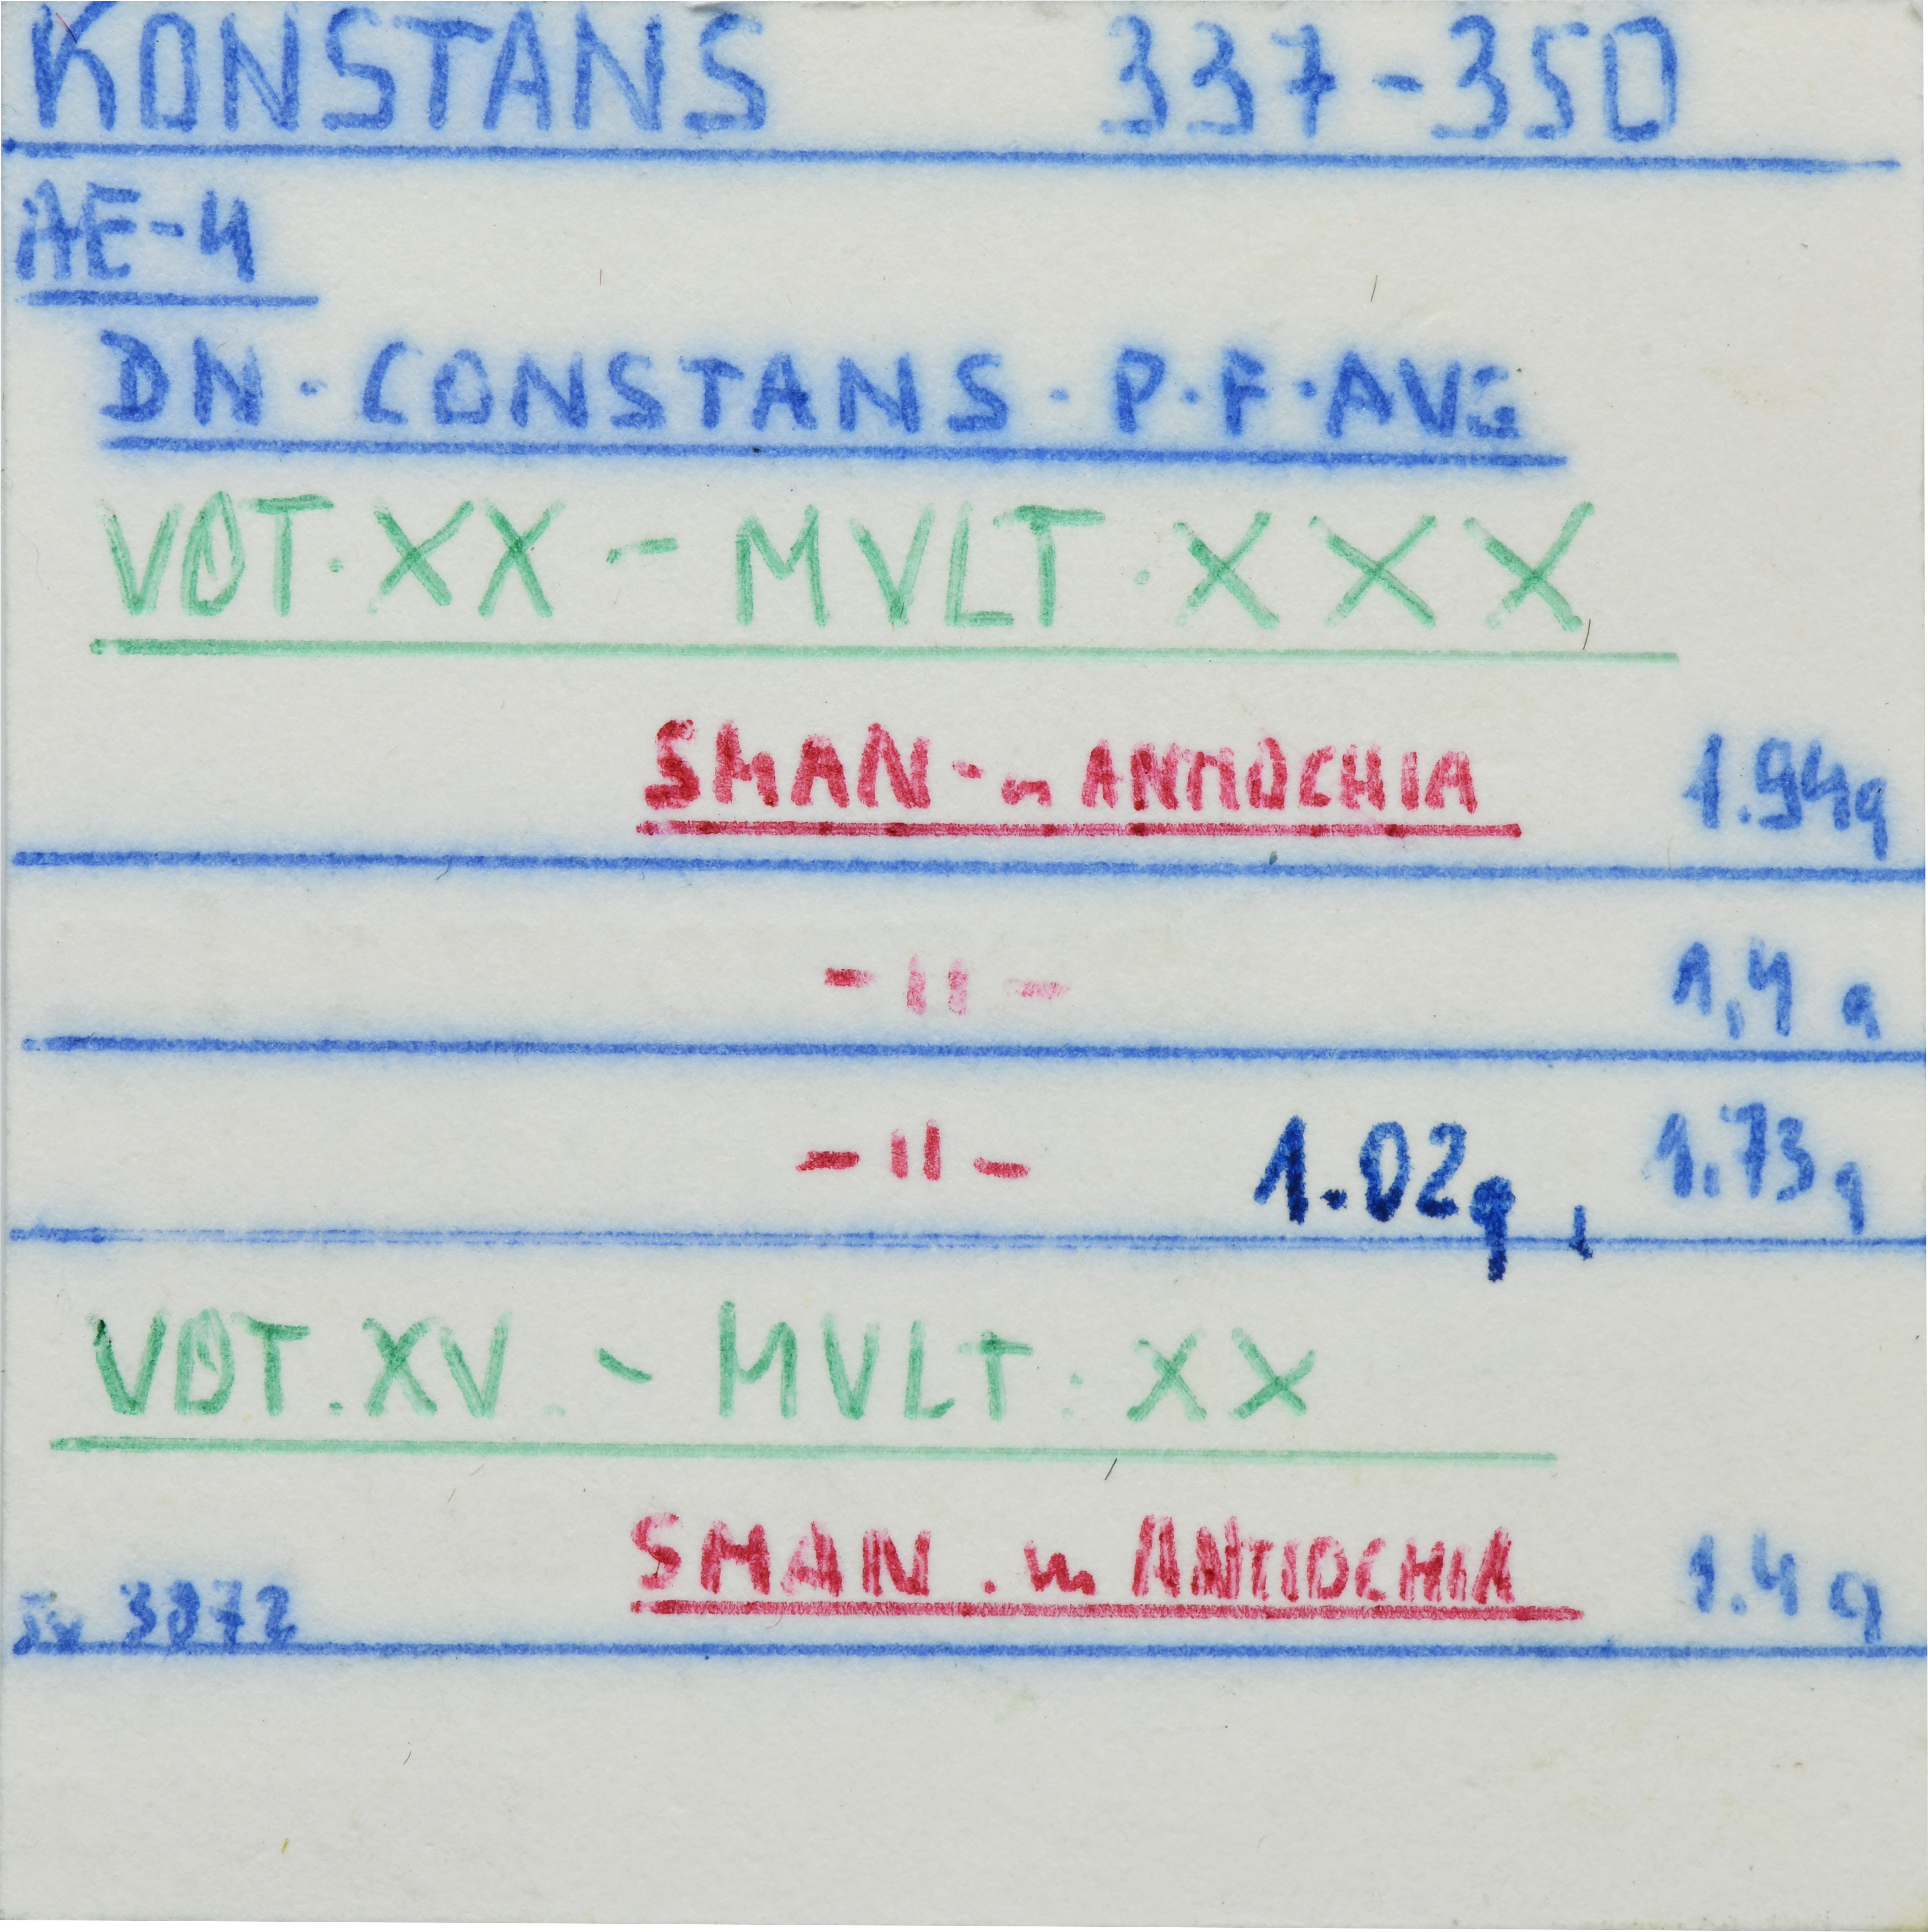 KONSTANS 337-350
AE-4
DN·CONSTANS·P·F·AVG
VOT·XX - MVLT·XXX
SMAN - m ANTIOCHIA 1.94g
-11- 1,4 g
-11- 1.02g, 1.73g
VOT.XV. - MVLT: XX
SMAN. m ANTIOCHIA 1.4 g
3872